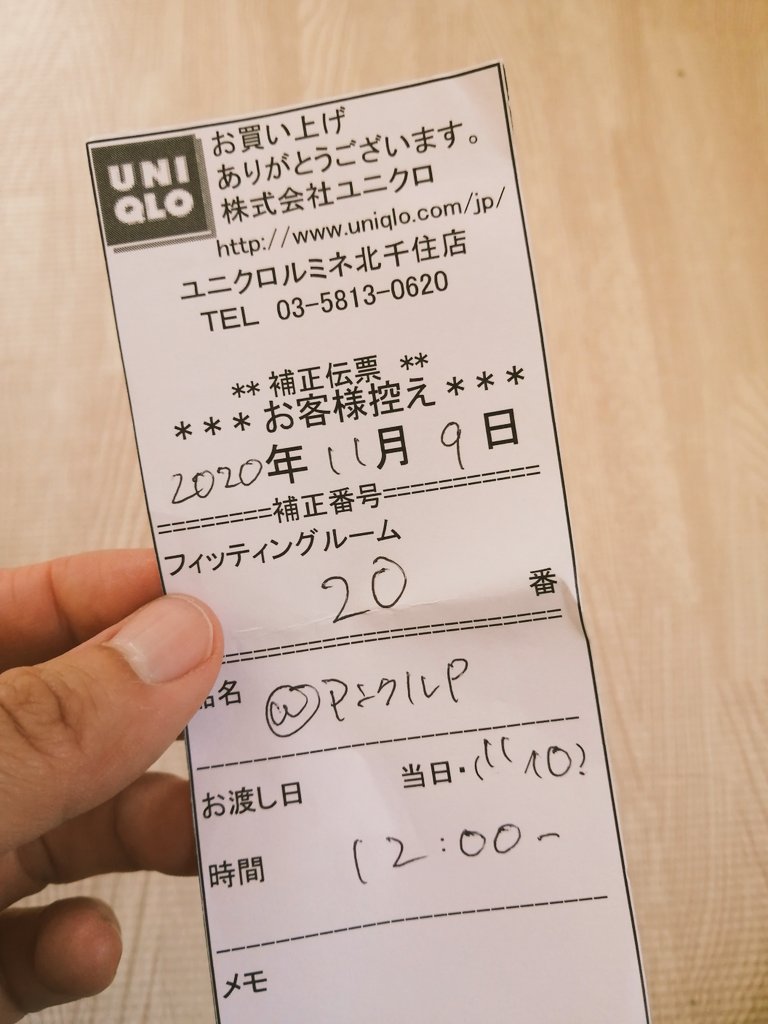 UNI
QLO
お買い上げ
ありがとうございます。
株式会社ユニクロ
http://www.uniqlo.com/jp/
ユニクロルミネ北千住店
TEL 03-5813-0620
** 補正伝票 **
***お客様控え***
2020年 11月 9日
========補正番号===========
フィッティングルーム
20 番
名
お渡し日 当日・
時間 12:00~
メモ